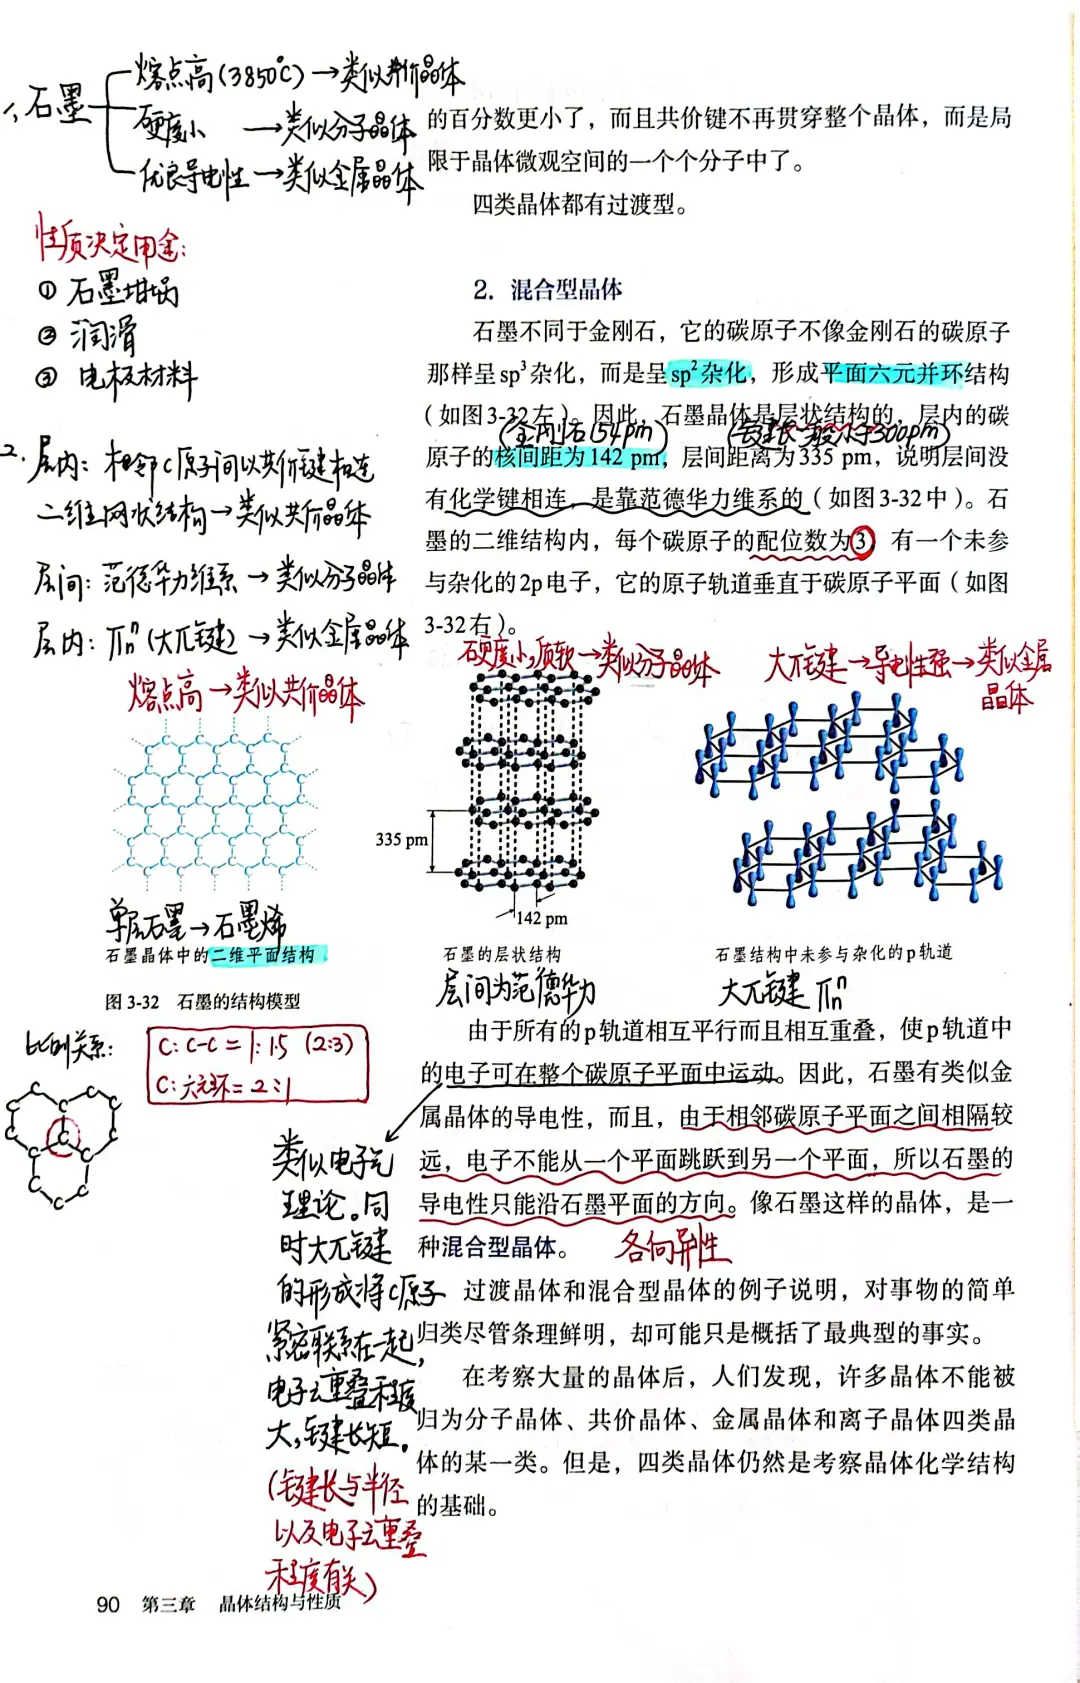 1、石墨
熔点高(3850℃)→类似共价晶体
硬度小 →类似分子晶体
优良导电性→类似金属晶体
性质决定用途:
① 石墨坩埚
② 润滑
③ 电极材料
2、层内: 相邻C原子间以共价键相连
二维网状结构→类似共价晶体
层间: 范德华力维系→类似分子晶体
层内: πⁿₙ(大π键)→类似金属晶体
的百分数更小了，而且共价键不再贯穿整个晶体，而是局
限于晶体微观空间的一个个分子中了。
四类晶体都有过渡型。
2. 混合型晶体
石墨不同于金刚石，它的碳原子不像金刚石的碳原子
那样呈sp³杂化，而是呈sp²杂化，形成平面六元并环结构
（如图3-32左）。因此，石墨晶体是层状结构的，层内的碳
(金刚石154pm) (键长一般小于300pm)
原子的核间距为142 pm，层间距离为335 pm，说明层间没
有化学键相连，是靠范德华力维系的（如图3-32中）。石
墨的二维结构内，每个碳原子的配位数为3，有一个未参
与杂化的2p电子，它的原子轨道垂直于碳原子平面（如图
3-32右）。
熔点高→类似共价晶体
硬度小,质软→类似分子晶体
大π键→导电性强→类似金属
晶体
335 pm
142 pm
单层石墨→石墨烯
石墨晶体中的二维平面结构
石墨的层状结构
石墨结构中未参与杂化的p轨道
层间为范德华力
大π键 πⁿₙ
图 3-32 石墨的结构模型
比例关系:
C: C-C = 1:1.5 (2:3)
C: 六元环= 2:1
由于所有的p轨道相互平行而且相互重叠，使p轨道中
的电子可在整个碳原子平面中运动。因此，石墨有类似金
属晶体的导电性，而且，由于相邻碳原子平面之间相隔较
远，电子不能从一个平面跳跃到另一个平面，所以石墨的
导电性只能沿石墨平面的方向。像石墨这样的晶体，是一
种混合型晶体。
各向异性
类似电子气
理论。同
时大π键
的形成将C原子
紧密联系在一起,
电子云重叠程度
大,键长短。
(键长与半径
以及电子云重叠
程度有关)
过渡晶体和混合型晶体的例子说明，对事物的简单
归类尽管条理鲜明，却可能只是概括了最典型的事实。
在考察大量的晶体后，人们发现，许多晶体不能被
归为分子晶体、共价晶体、金属晶体和离子晶体四类晶
体的某一类。但是，四类晶体仍然是考察晶体化学结构
的基础。
90 第三章 晶体结构与性质